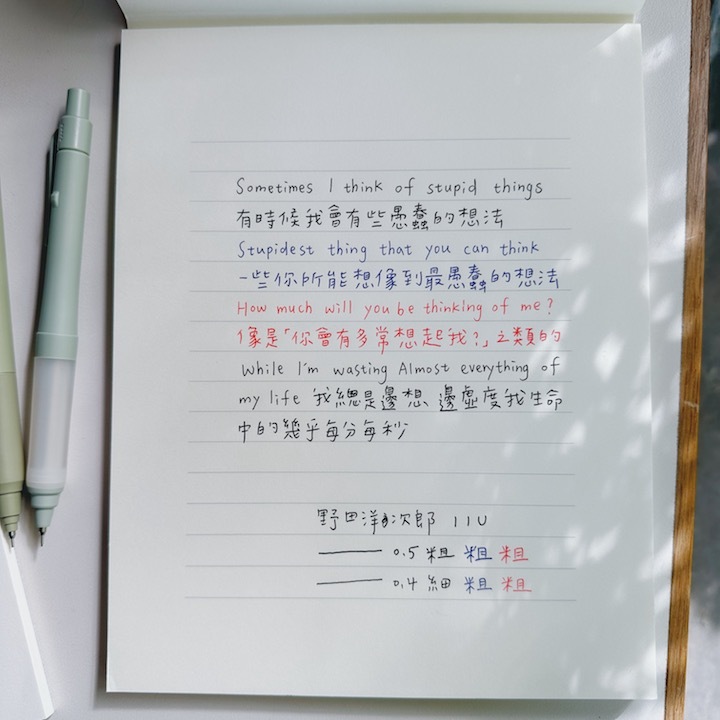 Sometimes I think of stupid things
有時候我會有些愚蠢的想法
Stupidest thing that you can think
一些你所能想像到最愚蠢的想法
How much will you be thinking of me?
像是「你會有多常想起我?」之類的
While I'm wasting Almost everything of
my life 我總是邊想、邊虛度我生命
中的幾乎每分每秒
野田洋次郎 IIU
0.5 粗 粗 粗
0.4 細 粗 粗